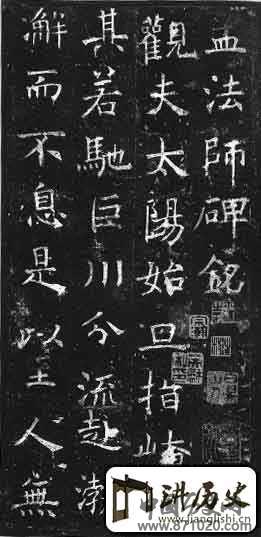 孟法師碑銘
觀夫太陽始旦指崦
其若馳巨川分流赴渤
澥而不息是以至人無
讲历史
www.jianglishi.cn
www.871020.com